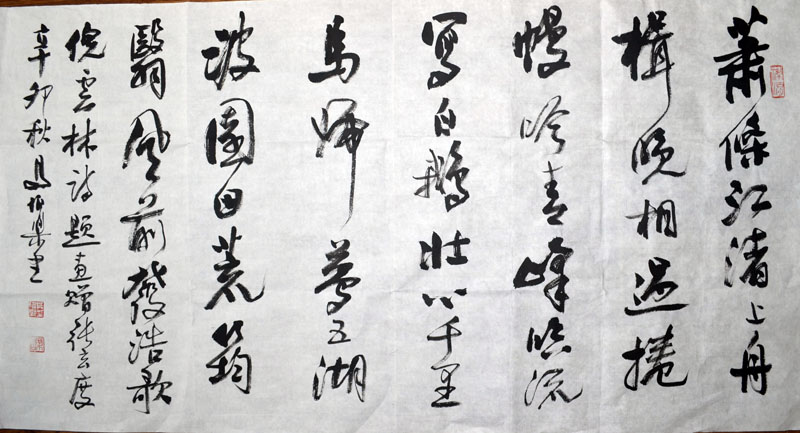 蕭條江渚上舟
楫晚相過捲
幔吟青峰臨流
寫白鵝壯心千里
馬歸夢五湖
波園田荒筠
翳風前發浩歌
倪雲林詩題畫贈張玄度
辛卯秋馬 書